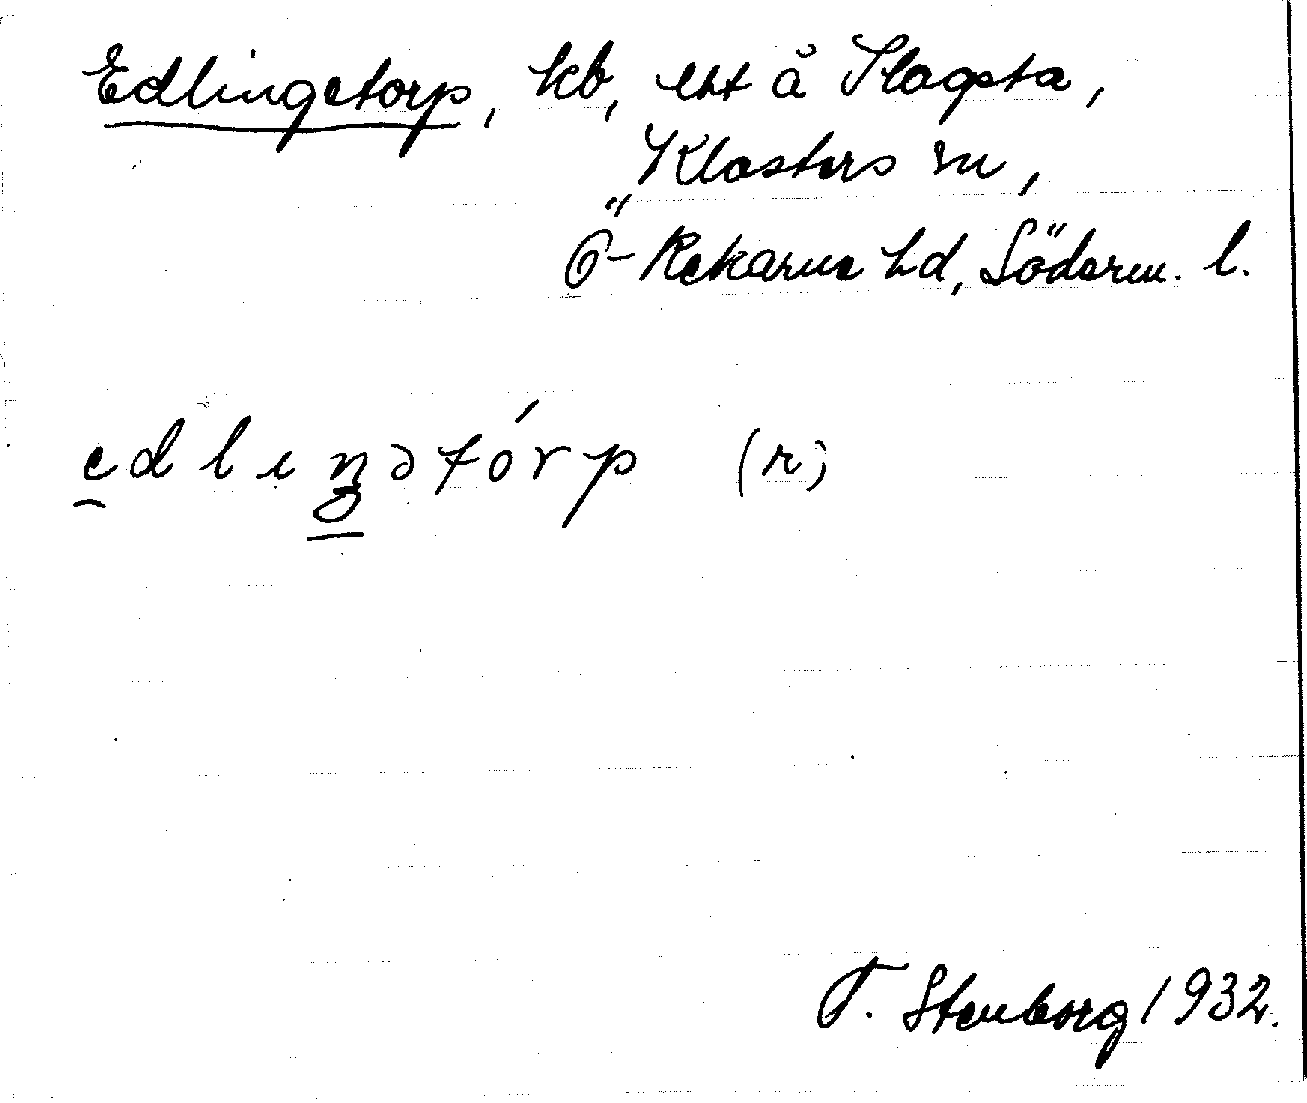 Edlingetorp, kb, lht å Slagsta,
Klosters sn,
Ö-Rekarne hd, Söderm. l.
edlıŋətórp (r)
T. Stenborg 1932.